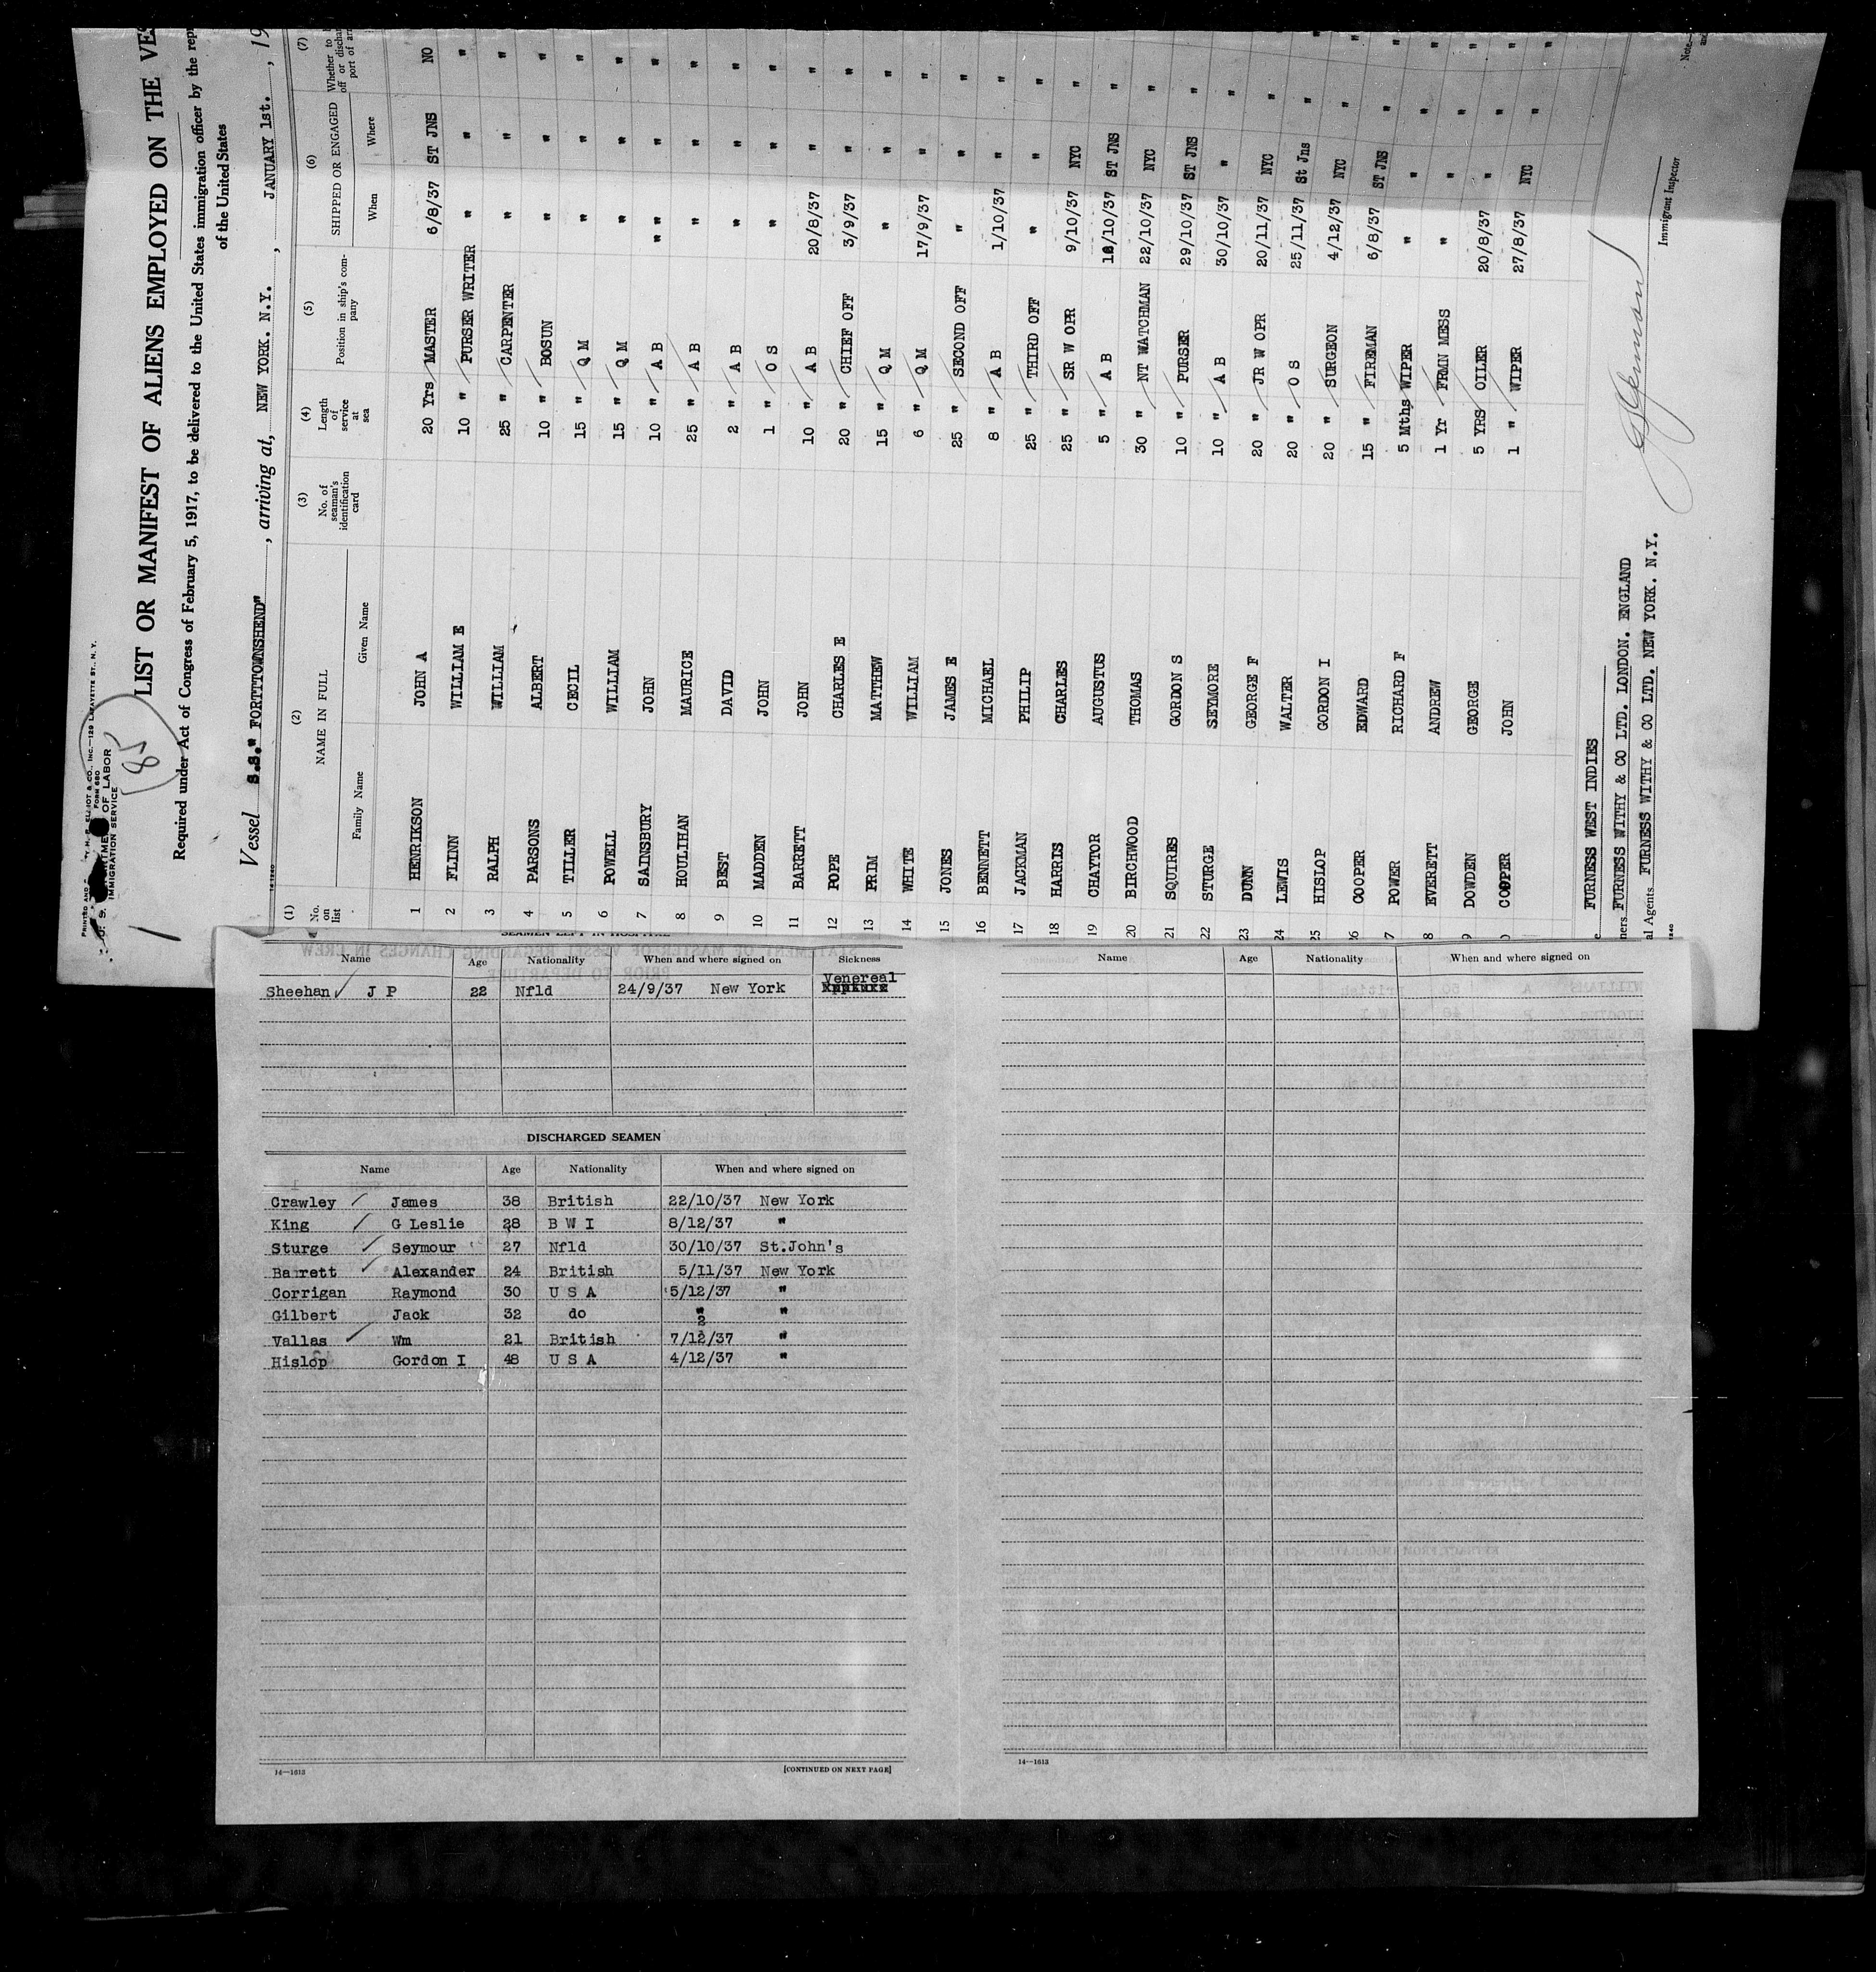 PRINTED AND
ELLIOT & CO., INC.—129 LAFAYETTE ST., N. Y.
FORM 680
U. S. DEPARTMENT OF LABOR
IMMIGRATION SERVICE
85
LIST OR MANIFEST OF ALIENS EMPLOYED ON THE VES
Required under Act of Congress of February 5, 1917, to be delivered to the United States immigration officer by the repr
of the United States
Vessel S.S." FORTTOWNSHEND" , arriving at, NEW YORK. N.Y. , JANUARY 1st. , 19
(1) (2) (3) (4) (5) (6) (7)
No. on list NAME IN FULL No. of seaman's identification card Length of service at sea Position in ship's company SHIPPED OR ENGAGED Whether to b off or dischar port of arr
Family Name Given Name When Where
1 HENRIKSON JOHN A 20 Yrs MASTER 6/8/37 ST JNS NO
2 FLINN WILLIAM E 10 " PURSER WRITER " " "
3 RALPH WILLIAM 25 " CARPENTER " " "
4 PARSONS ALBERT 10 " BOSUN " " "
5 TILLER CECIL 15 " Q M " " "
6 POWELL WILLIAM 15 " Q M " " "
7 SAINSBURY JOHN 10 " A B " " " "
8 HOULIHAN MAURICE 25 " A B " " "
9 BEST DAVID 2 " A B " " "
10 MADDEN JOHN 1 " O S " " "
11 BARRETT JOHN 10 " A B 20/8/37 " "
12 POPE CHARLES E 20 " CHIEF OFF 3/9/37 " "
13 PRIM MATTHEW 15 " Q M " " "
14 WHITE WILLIAM 6 " Q M 17/9/37 " "
15 JONES JAMES E 25 " SECOND OFF " " "
16 BENNETT MICHAEL 8 " A B 1/10/37 " "
17 JACKMAN PHILIP 25 " THIRD OFF " " "
18 HARRIS CHARLES 25 " SR W OPR 9/10/37 NYC "
19 CHAYTOR AUGUSTUS 5 " A B 18/10/37 ST JNS "
20 BIRCHWOOD THOMAS 30 " NT WATCHMAN 22/10/37 NYC "
21 SQUIRES GORDON S 10 " PURSER 29/10/37 ST JNS "
22 STURGE SEYMORE 10 " A B 30/10/37 " "
23 DUNN GEORGE F 20 " JR W OPR 20/11/37 NYC "
24 LEWIS WALTER 20 " O S 25/11/37 St Jns "
25 HISLOP GORDON I 20 " SURGEON 4/12/37 NYC "
26 COOPER EDWARD 15 " FIREMAN 6/8/37 ST JNS "
7 POWER RICHARD F 5 Mths WIPER " " "
8 EVERETT ANDREW 1 Yr FRMN MESS " " "
9 DOWDEN GEORGE 5 YRS OILER 20/8/37 " "
0 COOPER JOHN 1 " WIPER 27/8/37 NYC "
e FURNESS WEST INDIES
ners FURNESS WITHY & CO LTD. LONDON. ENGLAND
al Agents FURNESS WITHY & CO LTD. NEW YORK. N.Y.
Immigrant Inspector
Note.—
SEAMEN LEFT IN HOSPITAL
Name Age Nationality When and where signed on Sickness
Sheehan J P 22 Nfld 24/9/37 New York Venereal
DISCHARGED SEAMEN
Name Age Nationality When and where signed on
Crawley James 38 British 22/10/37 New York
King G Leslie 28 B W I 8/12/37 "
Sturge Seymour 27 Nfld 30/10/37 St.John's
Barrett Alexander 24 British 5/11/37 New York
Corrigan Raymond 30 U S A 5/12/37 "
Gilbert Jack 32 do " "
Vallas Wm 21 British 7/12/37 "
Hislop Gordon I 48 U S A 4/12/37 "
14—1613 [CONTINUED ON NEXT PAGE]
Name Age Nationality When and where signed on
14—1613